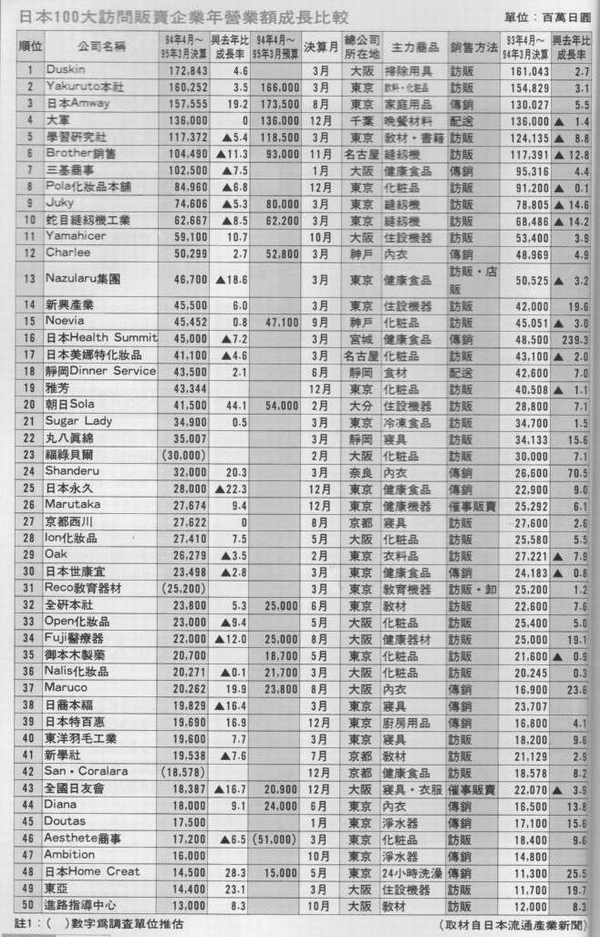 日本100大訪問販賣企業年營業額成長比較 單位：百萬日圓
順位 公司名稱 94年4月～95年3月決算 與去年比成長率 94年4月～95年3月預算 決算月 總公司所在地 主力商品 銷售方法 93年4月～94年3月決算 與去年比成長率
1 Duskin 172,843 4.6 3月 大阪 掃除用具 訪販 161,043 2.7
2 Yakuruto本社 160,252 3.5 166,000 3月 東京 飲料・化粧品 訪販 154,829 3.1
3 日本Amway 157,555 19.2 173,500 8月 東京 家庭用品 傳銷 130,027 5.5
4 大軍 136,000 0 136,000 12月 千葉 晚餐材料 配送 136,000 ▲ 1.4
5 學習研究社 117,372 ▲5.4 118,500 3月 東京 教材・書籍 訪販 124,135 ▲ 8.8
6 Brother銷售 104,490 ▲11.3 93,000 11月 名古屋 縫紉機 訪販 117,391 ▲ 12.8
7 三基商事 102,500 ▲7.5 1月 大阪 健康食品 傳銷 95,316 4.4
8 Pola化妝品本舖 84,960 ▲6.8 12月 東京 化粧品 訪販 91,200 ▲ 0.1
9 Juky 74,606 ▲5.3 80,000 3月 東京 縫紉機 訪販 78,805 ▲ 14.6
10 蛇目縫紉機工業 62,667 ▲8.5 62,200 3月 東京 縫紉機 訪販 68,486 ▲ 14.2
11 Yamahicer 59,100 10.7 10月 大阪 住設機器 訪販 53,400 3.9
12 Charlee 50,299 2.7 52,800 3月 神戶 內衣 傳銷 48,969 4.9
13 Nazularu集團 46,700 ▲18.6 3月 東京 健康食品 訪販・店販 50,525 ▲ 3.2
14 新興產業 45,500 6.0 3月 東京 住設機器 訪販 42,000 19.6
15 Noevia 45,452 0.8 47,100 9月 神戶 化粧品 訪販 45,051 ▲ 3.0
16 日本Health Summit 45,000 ▲7.2 3月 宮城 健康食品 傳銷 48,500 239.3
17 日本美娜特化妝品 41,100 ▲4.6 3月 名古屋 化粧品 訪販 43,100 ▲ 2.0
18 靜岡Dinner Service 43,500 2.1 6月 靜岡 食材 配送 42,600 7.0
19 雅芳 43,344 12月 東京 化粧品 訪販 40,508 ▲ 1.1
20 朝日Sola 41,500 44.1 54,000 2月 大分 住設機器 訪販 28,800 7.1
21 Sugar Lady 34,900 0.5 3月 東京 冷凍食品 訪販 34,700 1.5
22 丸八眞綿 35,007 3月 靜岡 寢具 訪販 34,133 15.6
23 福祿貝爾 (30,000) 2月 大阪 化粧品 訪販 30,000 7.1
24 Shanderu 32,000 20.3 3月 奈良 內衣 傳銷 26,600 70.5
25 日本永久 28,000 ▲22.3 12月 東京 健康食品 傳銷 22,900 9.0
26 Marutaka 27,674 9.4 12月 東京 健康機器 催事販賣 25,292 6.1
27 京都西川 27,622 0 8月 京都 寢具 訪販 27,600 2.6
28 Ion化妝品 27,410 7.5 5月 大阪 化粧品 訪販 25,580 5.5
29 Oak 26,279 ▲3.5 2月 東京 衣料品 訪販 27,221 ▲ 7.9
30 日本世康宜 23,498 ▲2.8 3月 東京 健康食品 傳銷 24,183 ▲ 0.8
31 Reco敎育器材 (25,200) 3月 東京 敎育機器 訪販・卸 25,200 1.2
32 全硏本社 23,800 5.3 25,000 6月 東京 敎材 訪販 22,600 7.6
33 Open化妝品 23,000 ▲9.4 5月 大阪 化粧品 訪販 25,400 5.0
34 Fuji醫療器 22,000 ▲12.0 25,000 8月 大阪 健康器材 訪販 25,000 19.1
35 御本木製藥 20,700 18,700 5月 東京 化粧品 訪販 21,600 ▲ 0.9
36 Nalis化妝品 20,271 ▲0.1 21,700 3月 大阪 化粧品 訪販 20,245 0.3
37 Maruco 20,262 19.9 23,800 8月 大阪 內衣 傳銷 16,900 23.6
38 日商本福 19,829 ▲16.4 3月 東京 寢具 傳銷 23,707
39 日本特百惠 19,690 16.9 12月 東京 廚房用品 傳銷 16,800 4.1
40 東洋羽毛工業 19,600 7.7 3月 東京 寢具 訪販 18,200 9.6
41 新學社 19,538 ▲7.6 7月 京都 敎材 訪販 21,129 2.9
42 San・Coralara (18,578) 12月 京都 健康食品 訪販 18,578 8.2
43 全國日友會 18,387 ▲16.7 20,900 12月 大阪 寢具・衣服 催事販賣 22,070 ▲ 3.9
44 Diana 18,000 9.1 24,000 6月 東京 內衣 傳銷 16,500 13.8
45 Doutas 17,500 1月 東京 淨水器 傳銷 17,100 15.6
46 Aesthete商事 17,200 ▲6.5 (51,000) 3月 東京 化粧品 訪販 18,400 9.6
47 Ambition 16,000 10月 東京 淨水器 傳銷 14,800
48 日本Home Creat 14,500 28.3 15,000 5月 東京 24小時洗澡 傳銷 11,300 25.5
49 東亞 14,400 23.1 3月 大阪 住設機器 訪販 11,700 19.7
50 進路指導中心 13,000 8.3 10月 大阪 敎材 訪販 12,000 8.3
註1：（ ）數字爲調査單位推估 （取材自日本流通產業新聞）